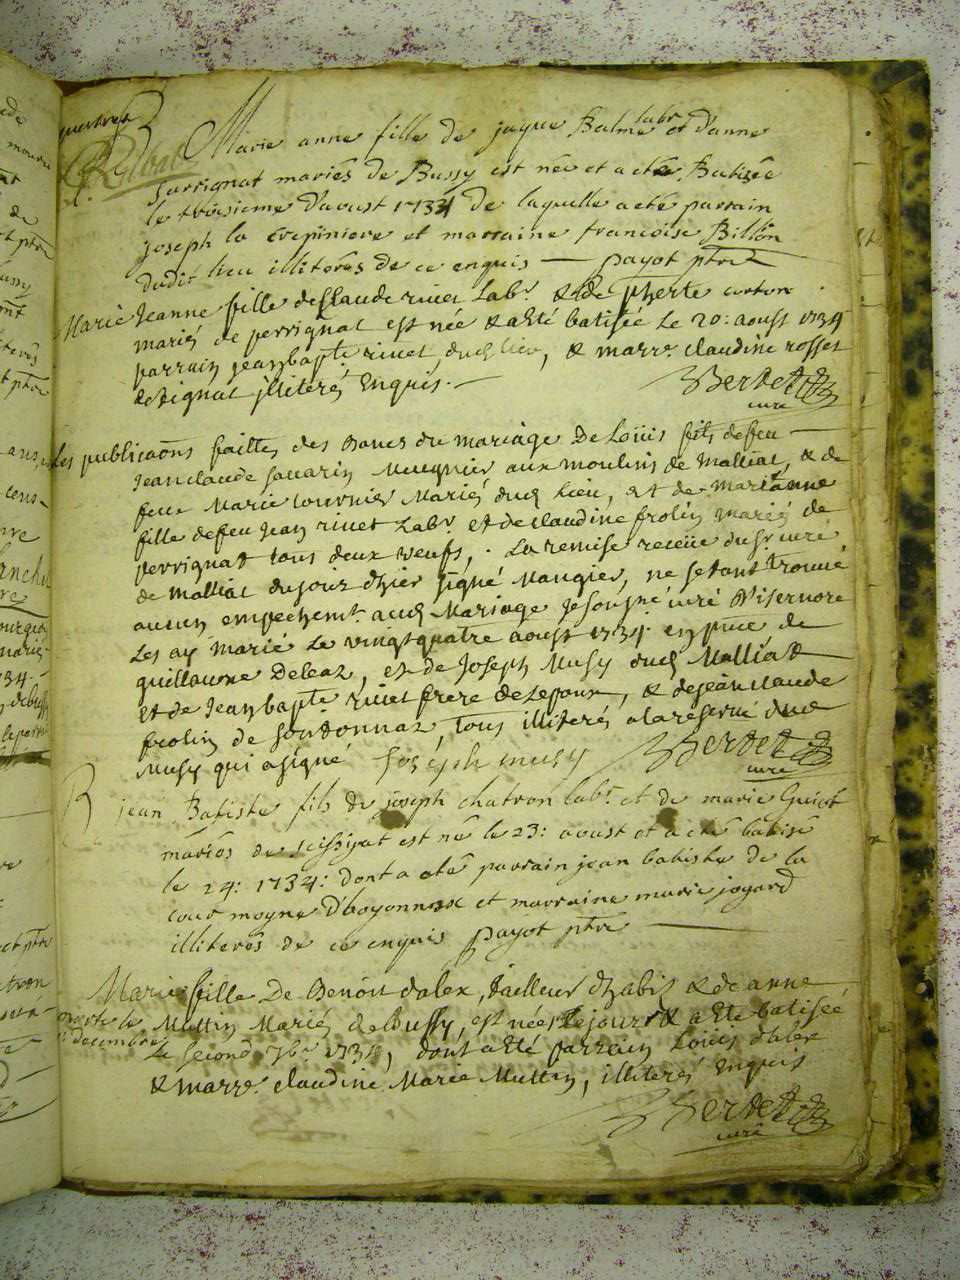 Marie anne fille de jaque Balme labr et d'anne
sarrignat mariés de Bussy est née et a eté Batisée
le troisieme d'aoust 1734 de laquelle a eté parrain
joseph la Crepiniere et marraine francoise Billon
dudit lieu illiterés de ce enquis — payot ptre
Marie Jeanne fille de Claude rivet Labr. & de
mariés de perrignat est née & a Eté batisée Le 20: aoust 1734
parrain jean bapte rivet dud lieu, & marre. claudine rosset
illiterés Enquis. —
Berdet
curé
Les publicaons faittes des Bancs du mariage De Loüis fils de feu
Jean claude savarin Mugnier aux moulins de Malliat, & de
feue Marie tournier Mariés dud Lieu, et de marianne
fille de feu Jean rivet Labr et de claudine frolin mariés de
perrignat tous deux veufs, . La remise receüe du sr curé
de Malliat du jour d'hier signé Maugier, ne se tant trouvé
aucun empechemt. aud Mariage Je sousné curé D'isernore
Les ay marié Le vingt quatre aoust 1734. en pnce de
guillaume Deleaz, et de Joseph Musy dud Malliat
et de Jean bapte rivet frere de Lepouse, & de jean claude
frolin de tous illiterés a la reserve dud
Musy qui a signé Joseph musy Berdet
curé
B jean Batiste fils de joseph chatron labr. et de marie Guiot
mariés de seissiat est né le 23: aoust et a eté batisé
le 24: 1734: dont a eté parrain jean batiste de la
cour moyne d'hoyonnax et marraine marie joyard
illiterés de ce enquis payot ptre
Marie fille De Benoit dalex, tailleur d'habit & de anne
morte le Muttin Mariés de Bussy, est née le jour & a eté batiseé
decembre Le second 7br. 1734, dont a Eté parrain Loüis dalex
& marre. claudine Marie Muttin, illiterés Enquis
Berdet
curé